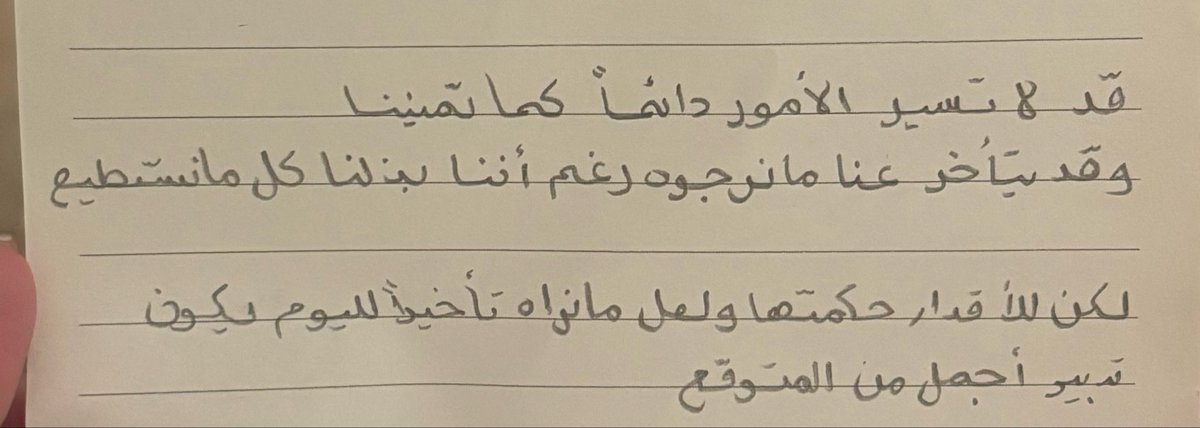 قد لا تسير الأمور دائماً كما تمنينا
وقد يتأخر عنا ما نرجوه رغم أننا بذلنا كل مانستطيع
لكن للأقدار حكمتها ولعل مانراه تأخيراً لليوم يكون
تدبير أجمل من المتوقع